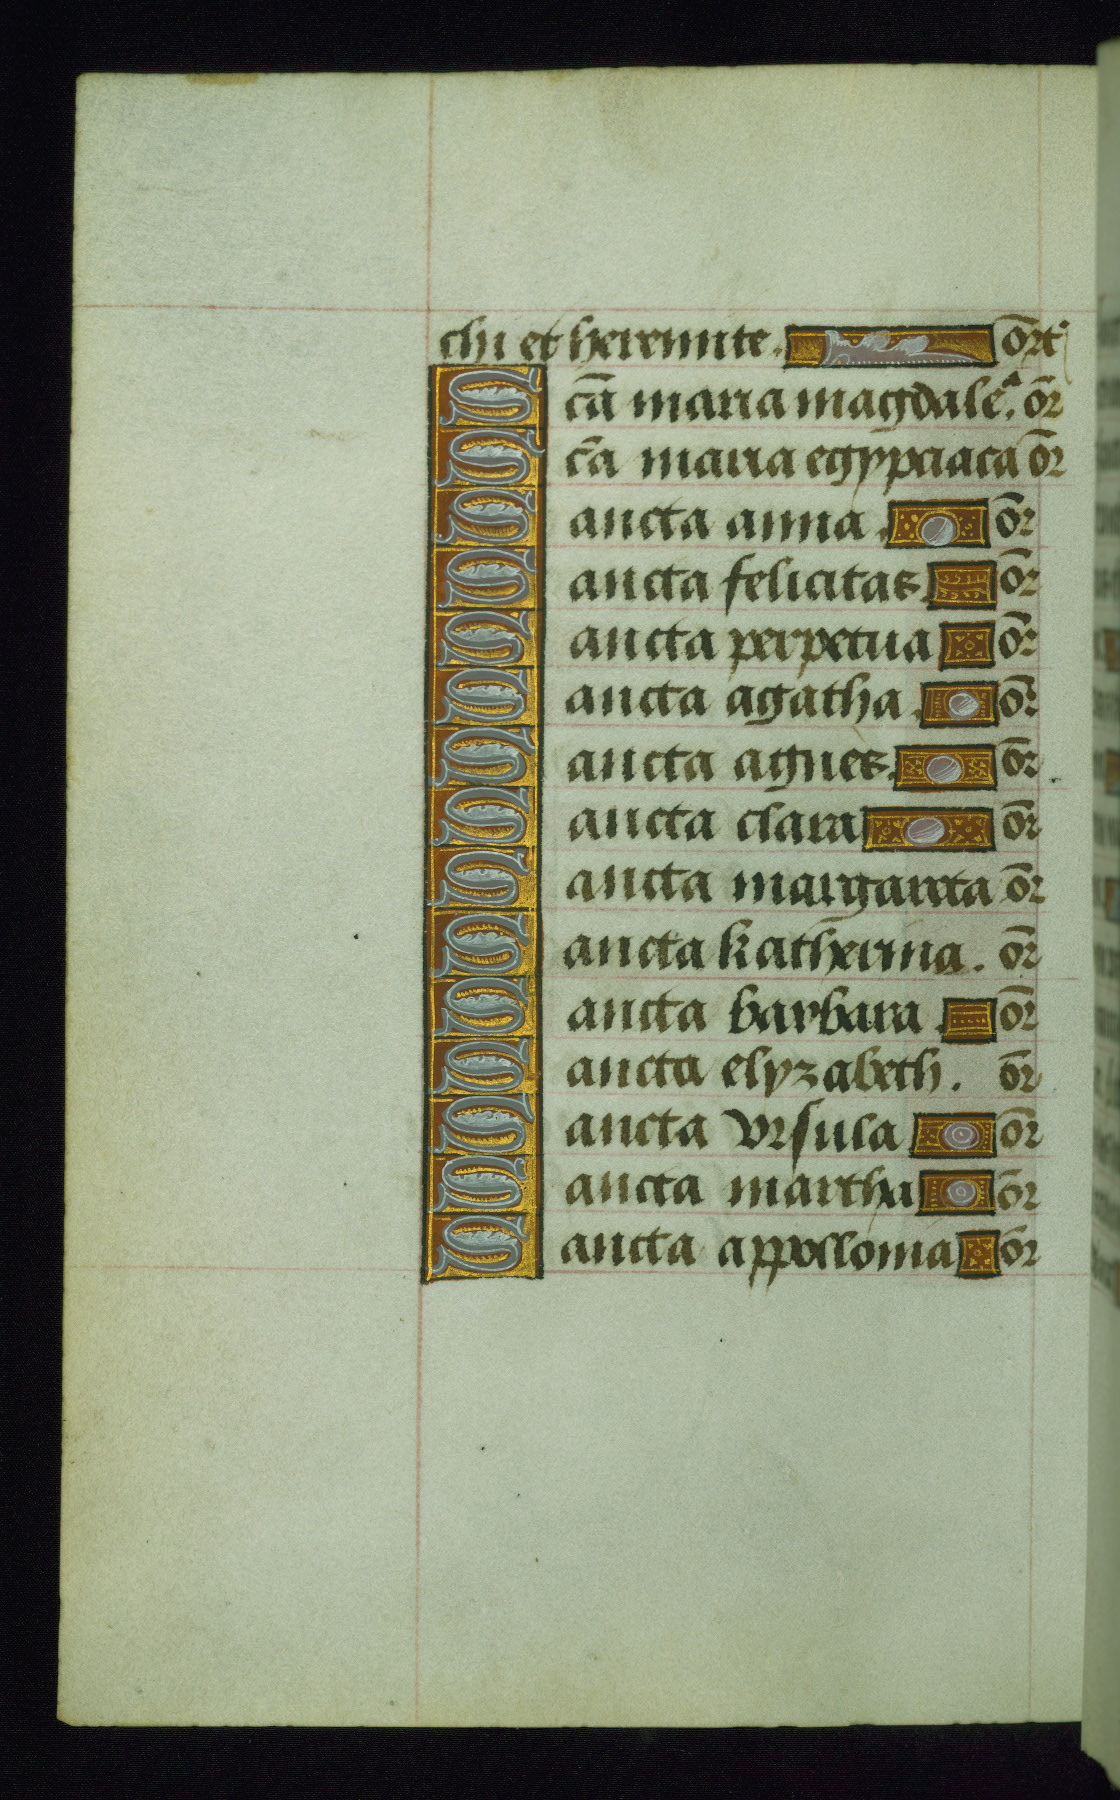 chi et heremite. ōrt
Scā maria magdaleᵃ. ōr
Scā maria egypciaca ōr
Sancta anna. ōr
Sancta felicitas. ōr
Sancta perpetua ōr
Sancta agatha. ōr
Sancta agnes. ōr
Sancta clara ōr
Sancta margareta ōr
Sancta katherina. ōr
Sancta barbara. ōr
Sancta elyzabeth. ōr
Sancta vrsula ōr
Sancta martha ōr
Sancta appollonia ōr